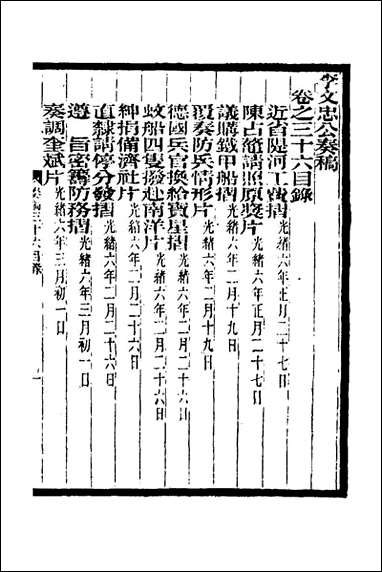 李文忠公奏稿
卷之三十六目錄
近省隄河工費摺 光緒六年正月二十七日
陳占鼇請照原獎片 光緒六年正月二十七日
議購鐵甲船摺 光緒六年二月十九日
覆奏防兵情形片 光緒六年二月十九日
德國兵官換給寶星摺 光緒六年二月二十六日
蚊船四隻撥赴南洋片 光緒六年二月二十六日
紳捐備濟社片 光緒六年二月二十六日
直隸請停分發摺 光緒六年二月二十六日
遵 旨密籌防務摺 光緒六年三月初一日
奏調奎斌片 光緒六年三月初一日
奏稿三十六目錄 一